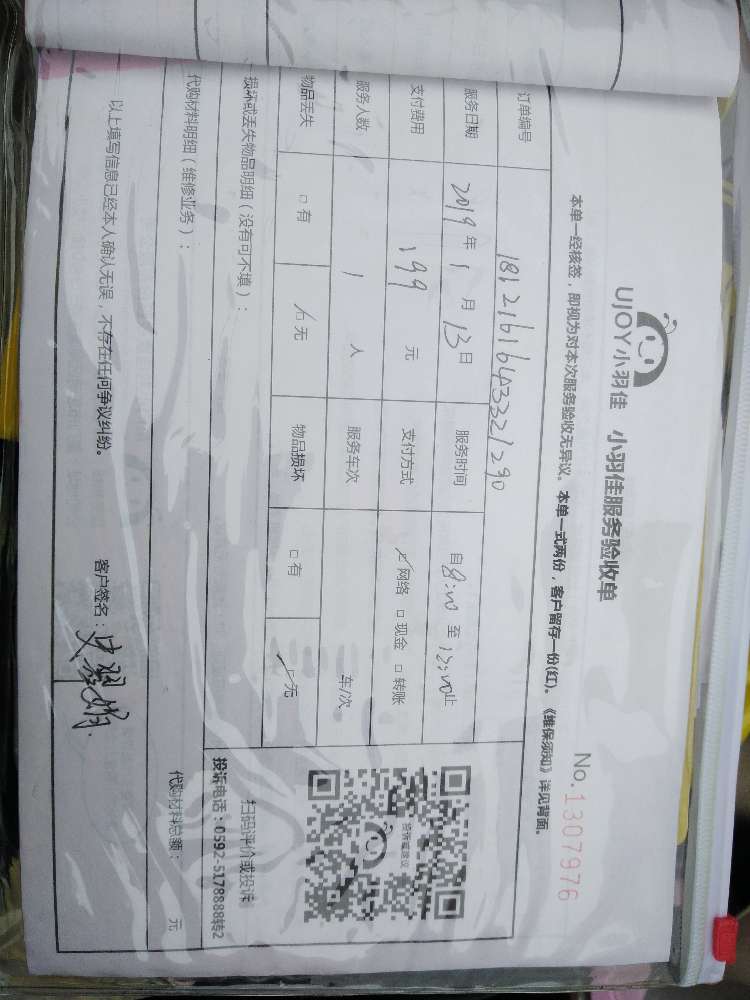 UJOY小羽佳 小羽佳服务验收单
No.1307976
本单一经核签，即视为对本次服务验收无异议。本单一式两份，客户留存一份(红)。《维保须知》详见背面。
订单编号 1812161643321290
服务日期 2019年1月13日 服务时间 自8:00至12:00止
支付费用 199元 支付方式 网络 □现金 □转账
服务人数 1人 服务车次 车/次
物品丢失 □有 □无 物品损坏 □有 □无
损坏或丢失物品明细（没有可不填）：
扫码评价或投诉
投诉电话：0592-5178888转2
代购材料明细（维修业务）：
代购材料总额： 元
以上填写信息已经本人确认无误，不存在任何争议纠纷。
客户签名：